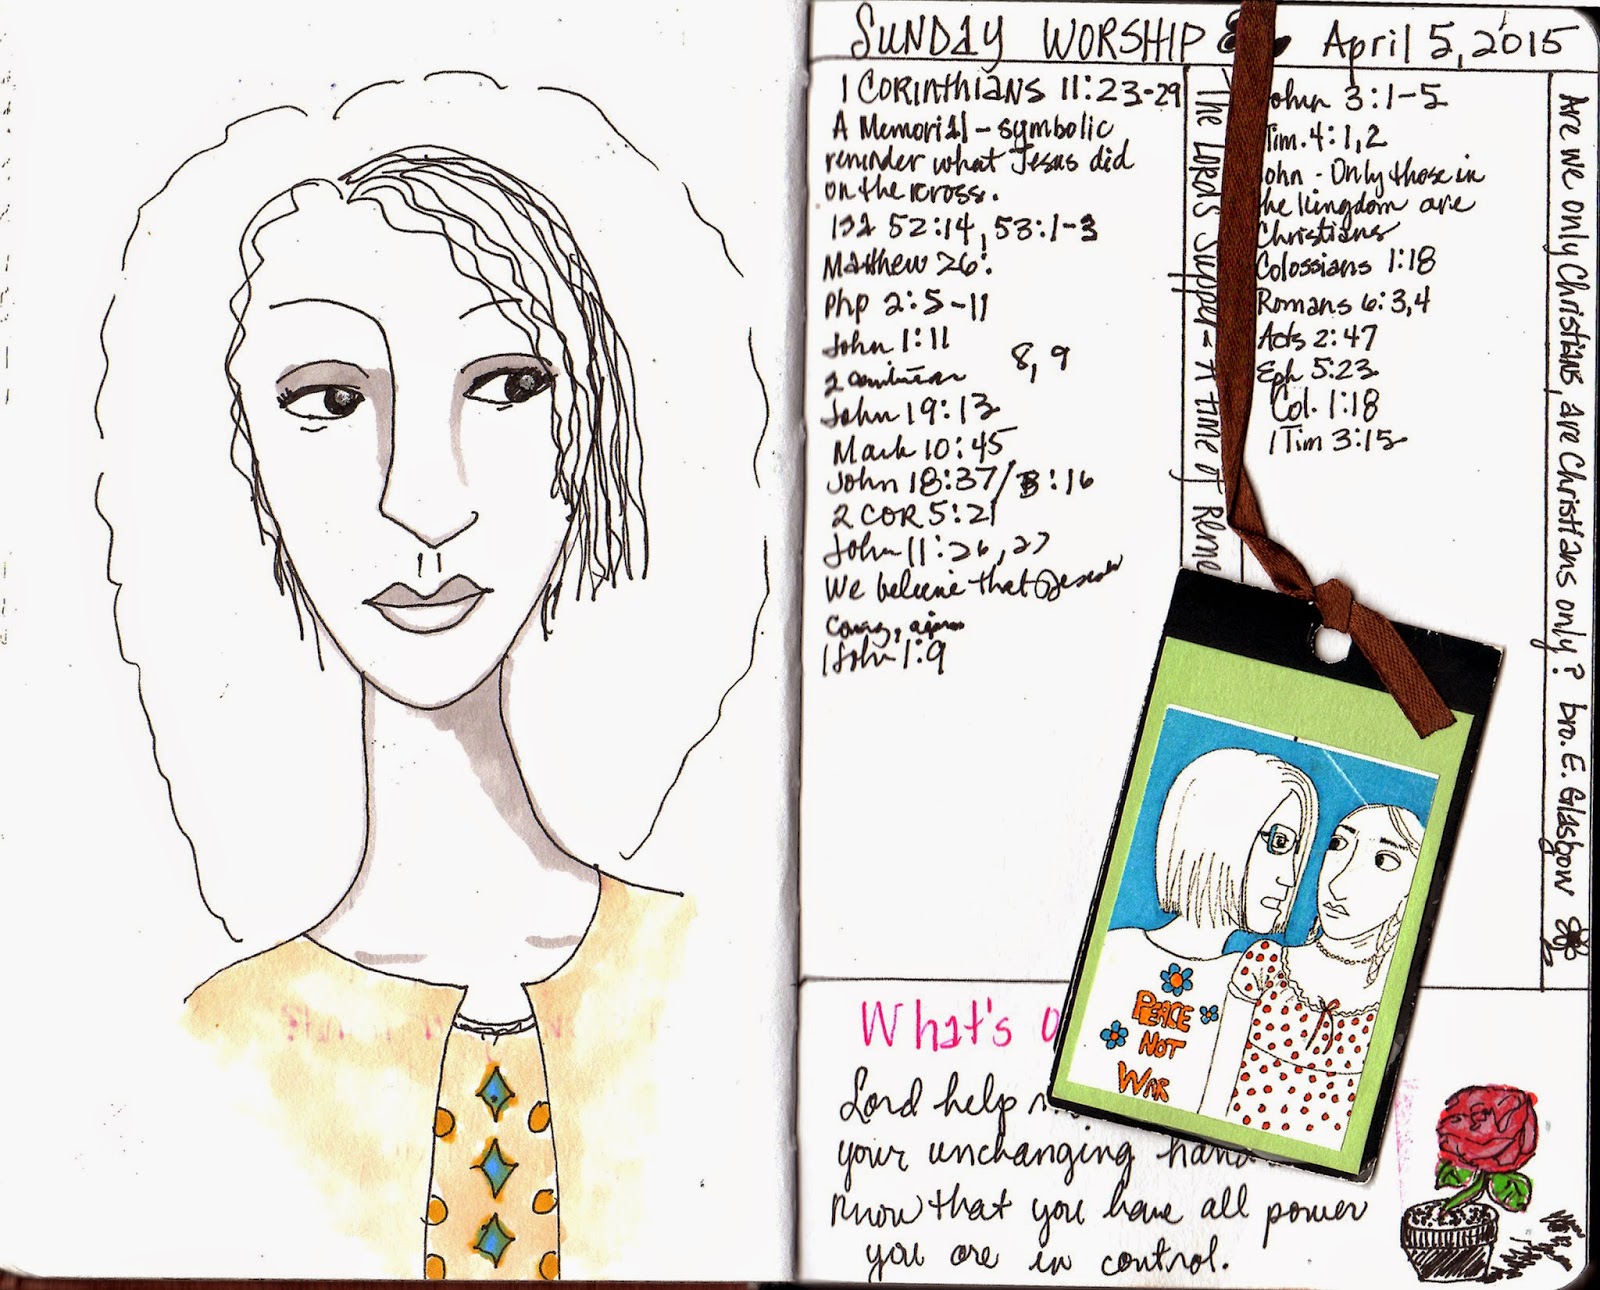 SUNDAY WORSHIP April 5, 2015
1 CORINTHIANS 11:23-29
A Memorial - symbolic
reminder what Jesus did
on the cross.
ISa 52:14, 53:1-3
Matthew 26:
Php 2:5-11
John 1:11
8, 9
John 19:13
Mark 10:45
John 18:37/3:16
2 COR 5:21
John 11:26, 27
We believe that Jesus
1 John 1:9
The Lord's Supper - A time of Reme
John 3:1-5
Tim. 4:1,2
John - Only those in
the kingdom are
Christians
Colossians 1:18
Romans 6:3,4
Acts 2:47
Eph 5:23
Col. 1:18
1 Tim 3:15
Are we only Christians, are Christians only? bro. E. Glasgow
What's
Lord help
your unchanging hand
know that you have all power
you are in control.
PEACE
NOT
WAR